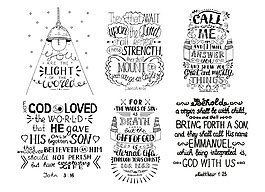 you
ARE THE
LIGHT
OF the
world
they that WAIT
upon the Lord
shall
STRENGTH
they shall
MOUNT
CALL
unto
ME
AND I WILL
ANSWER
AND SHOW YOU
GREAT and mighty
THINGS
GOD so LOVED
the WORLD
that HE GAVE
HIS only begotten SON
that whosoever
BELIEVETH in HIM
SHOULD NOT PERISH
but have
everlasting
LIFE
John 3:16
FOR
THE WAGES OF SIN
is
DEATH
BUT the
GIFT of GOD
is eternal life
THROUGH JESUS CHRIST
our LORD
Behold
a virgin shall be with
child and shall
BRING FORTH A SON,
and they shall call His name
EMMANUEL
which being interpreted is,
GOD WITH US
Matthew 1:23